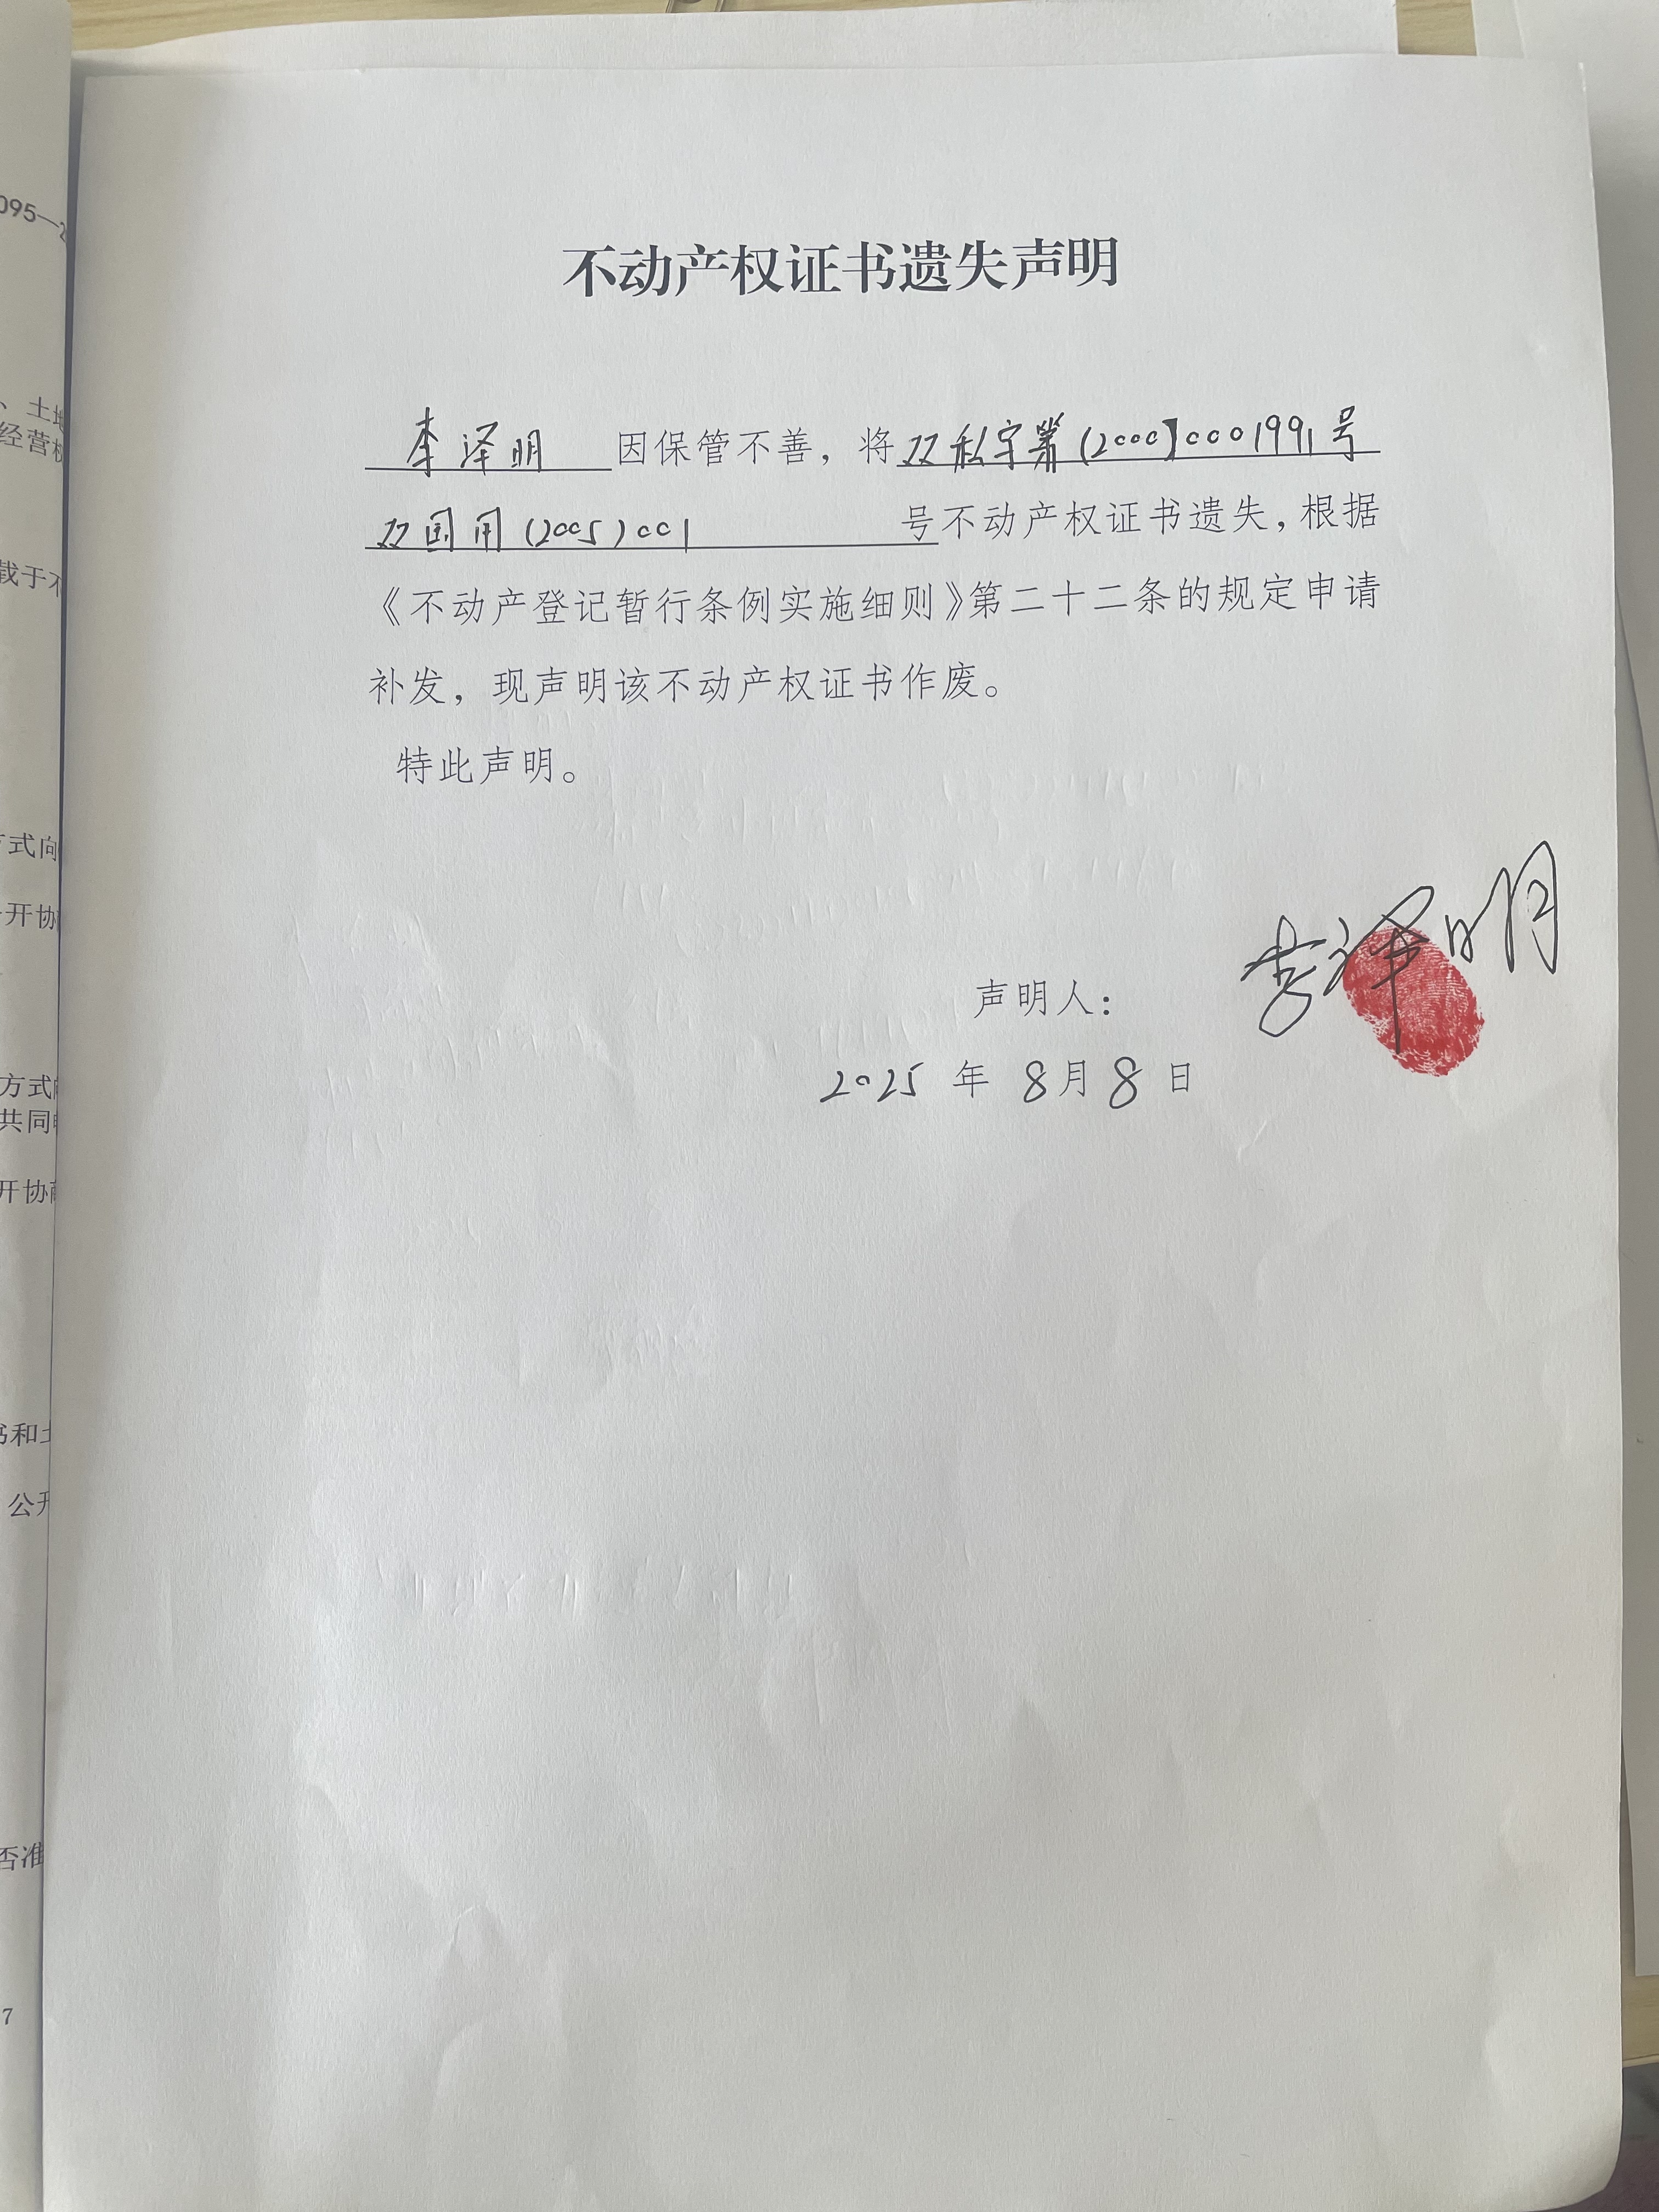 095—2
、土地
经营权
载于不
方式向
开协
方式向
共同
开协商
书和土
公开
否准
7
不动产权证书遗失声明
李泽明 因保管不善，将双私字第(2000]0001991号
双国用(2005)001 号不动产权证书遗失，根据
《不动产登记暂行条例实施细则》第二十二条的规定申请
补发，现声明该不动产权证书作废。
特此声明。
声明人： 李泽明
2025 年 8月8 日